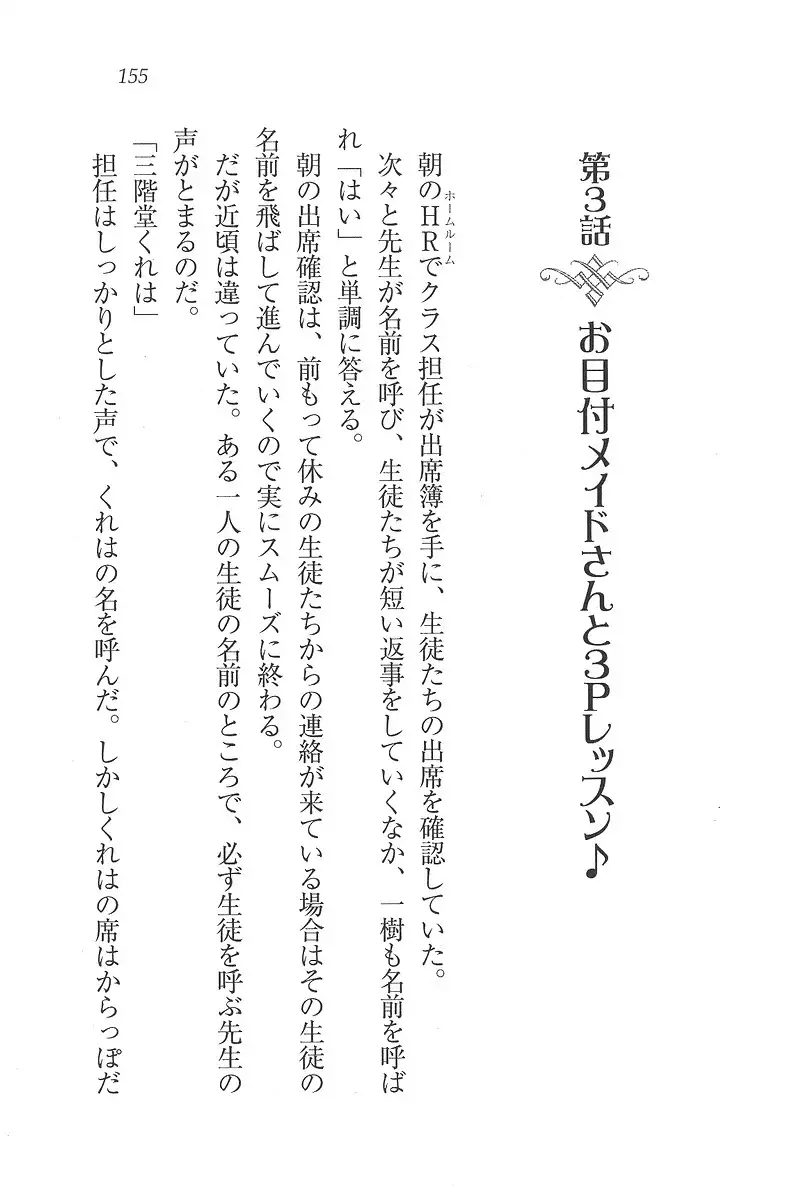 155
第3話 お目付メイドさんと3Pレッスン♪
朝のHRでクラス担任が出席簿を手に、生徒たちの出席を確認していた。
ホームルーム
次々と先生が名前を呼び、生徒たちが短い返事をしていくなか、一樹も名前を呼ば
れ「はい」と単調に答える。
朝の出席確認は、前もって休みの生徒たちからの連絡が来ている場合はその生徒の
名前を飛ばして進んでいくので実にスムーズに終わる。
だが近頃は違っていた。ある一人の生徒の名前のところで、必ず生徒を呼ぶ先生の
声がとまるのだ。
「三階堂くれは」
担任はしっかりとした声で、くれはの名を呼んだ。しかしくれはの席はからっぽだ